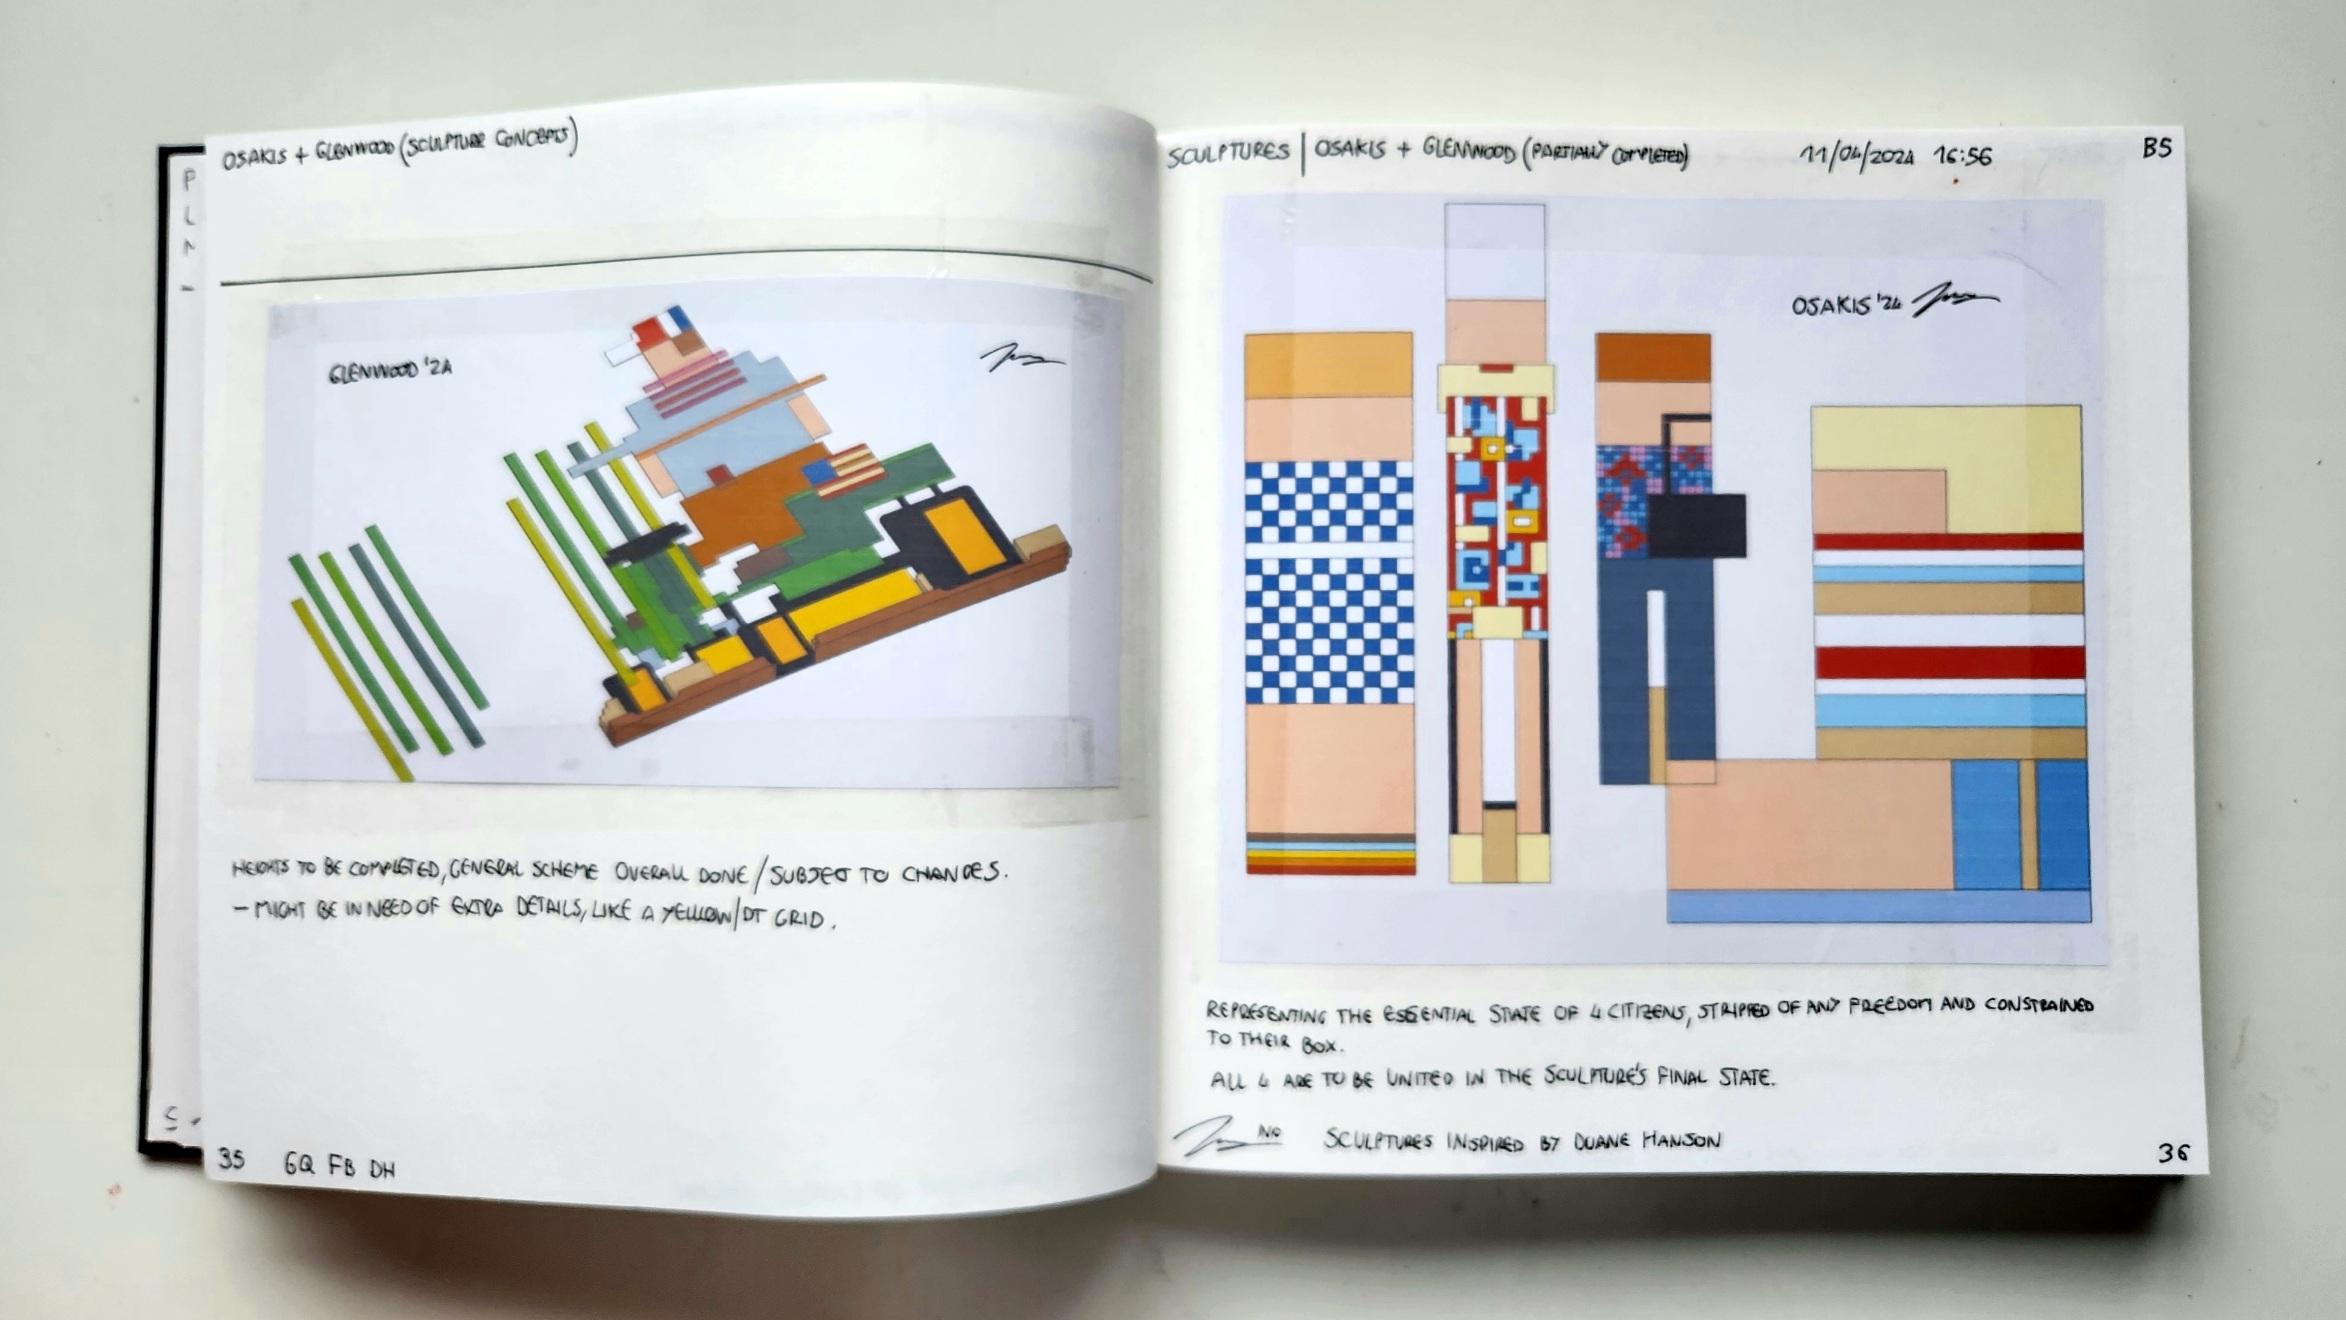 OSAKIS + GLENWOOD (SCULPTURE CONCEPTS)
GLENWOOD '24
HEIGHTS TO BE COMPLETED, GENERAL SCHEME OVERALL DONE / SUBJECT TO CHANGES.
– MIGHT BE IN NEED OF EXTRA DETAILS, LIKE A YELLOW/DT GRID.
35 GQ FB DH
SCULPTURES | OSAKIS + GLENWOOD (PARTIALLY COMPLETED) 11/04/2024 16:56 B5
OSAKIS '24
REPRESENTING THE ESSENTIAL STATE OF 4 CITIZENS, STRIPPED OF ANY FREEDOM AND CONSTRAINED
TO THEIR BOX.
ALL 4 ARE TO BE UNITED IN THE SCULPTURE'S FINAL STATE.
SCULPTURES INSPIRED BY DUANE HANSON
36